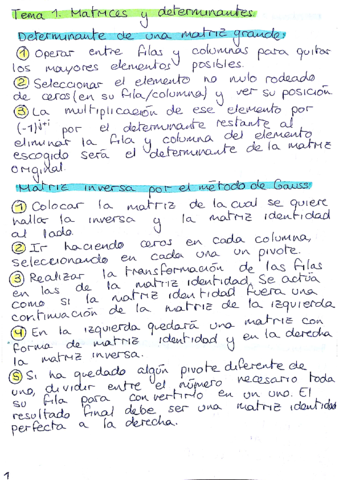 Tema 1. Matrices y determinantes
Determinante de una matriz grande
① Operar entre filas y columnas para quitar
los mayores elementos posibles.
② Seleccionar el elemento no nulo rodeado
de ceros (en su fila/columna) y ver su posición
③ La multiplicación de ese elemento por
(-1)^j+i por el determinante restante al
eliminar la fila y columna del elemento
escogido será el determinante de la matriz
original.
Matriz inversa por el método de Gauss
① Colocar la matriz de la cual se quiere
hallar la inversa y la matriz identidad
al lado.
② Ir haciendo ceros en cada columna,
seleccionando en cada una un pivote.
③ Realizar la transformación de las filas
en las de la matriz identidad. Se actúa
como si la matriz identidad fuera una
continuación de la matriz de la izquierda
④ En la izquierda quedará una matriz con
forma de matriz identidad y en la derecha
la matriz inversa.
⑤ Si ha quedado algún pivote diferente de
uno, dividir entre el número necesario toda
su fila para convertirlo en un uno. El
resultado final debe ser una matriz identidad
perfecta a la derecha.
1